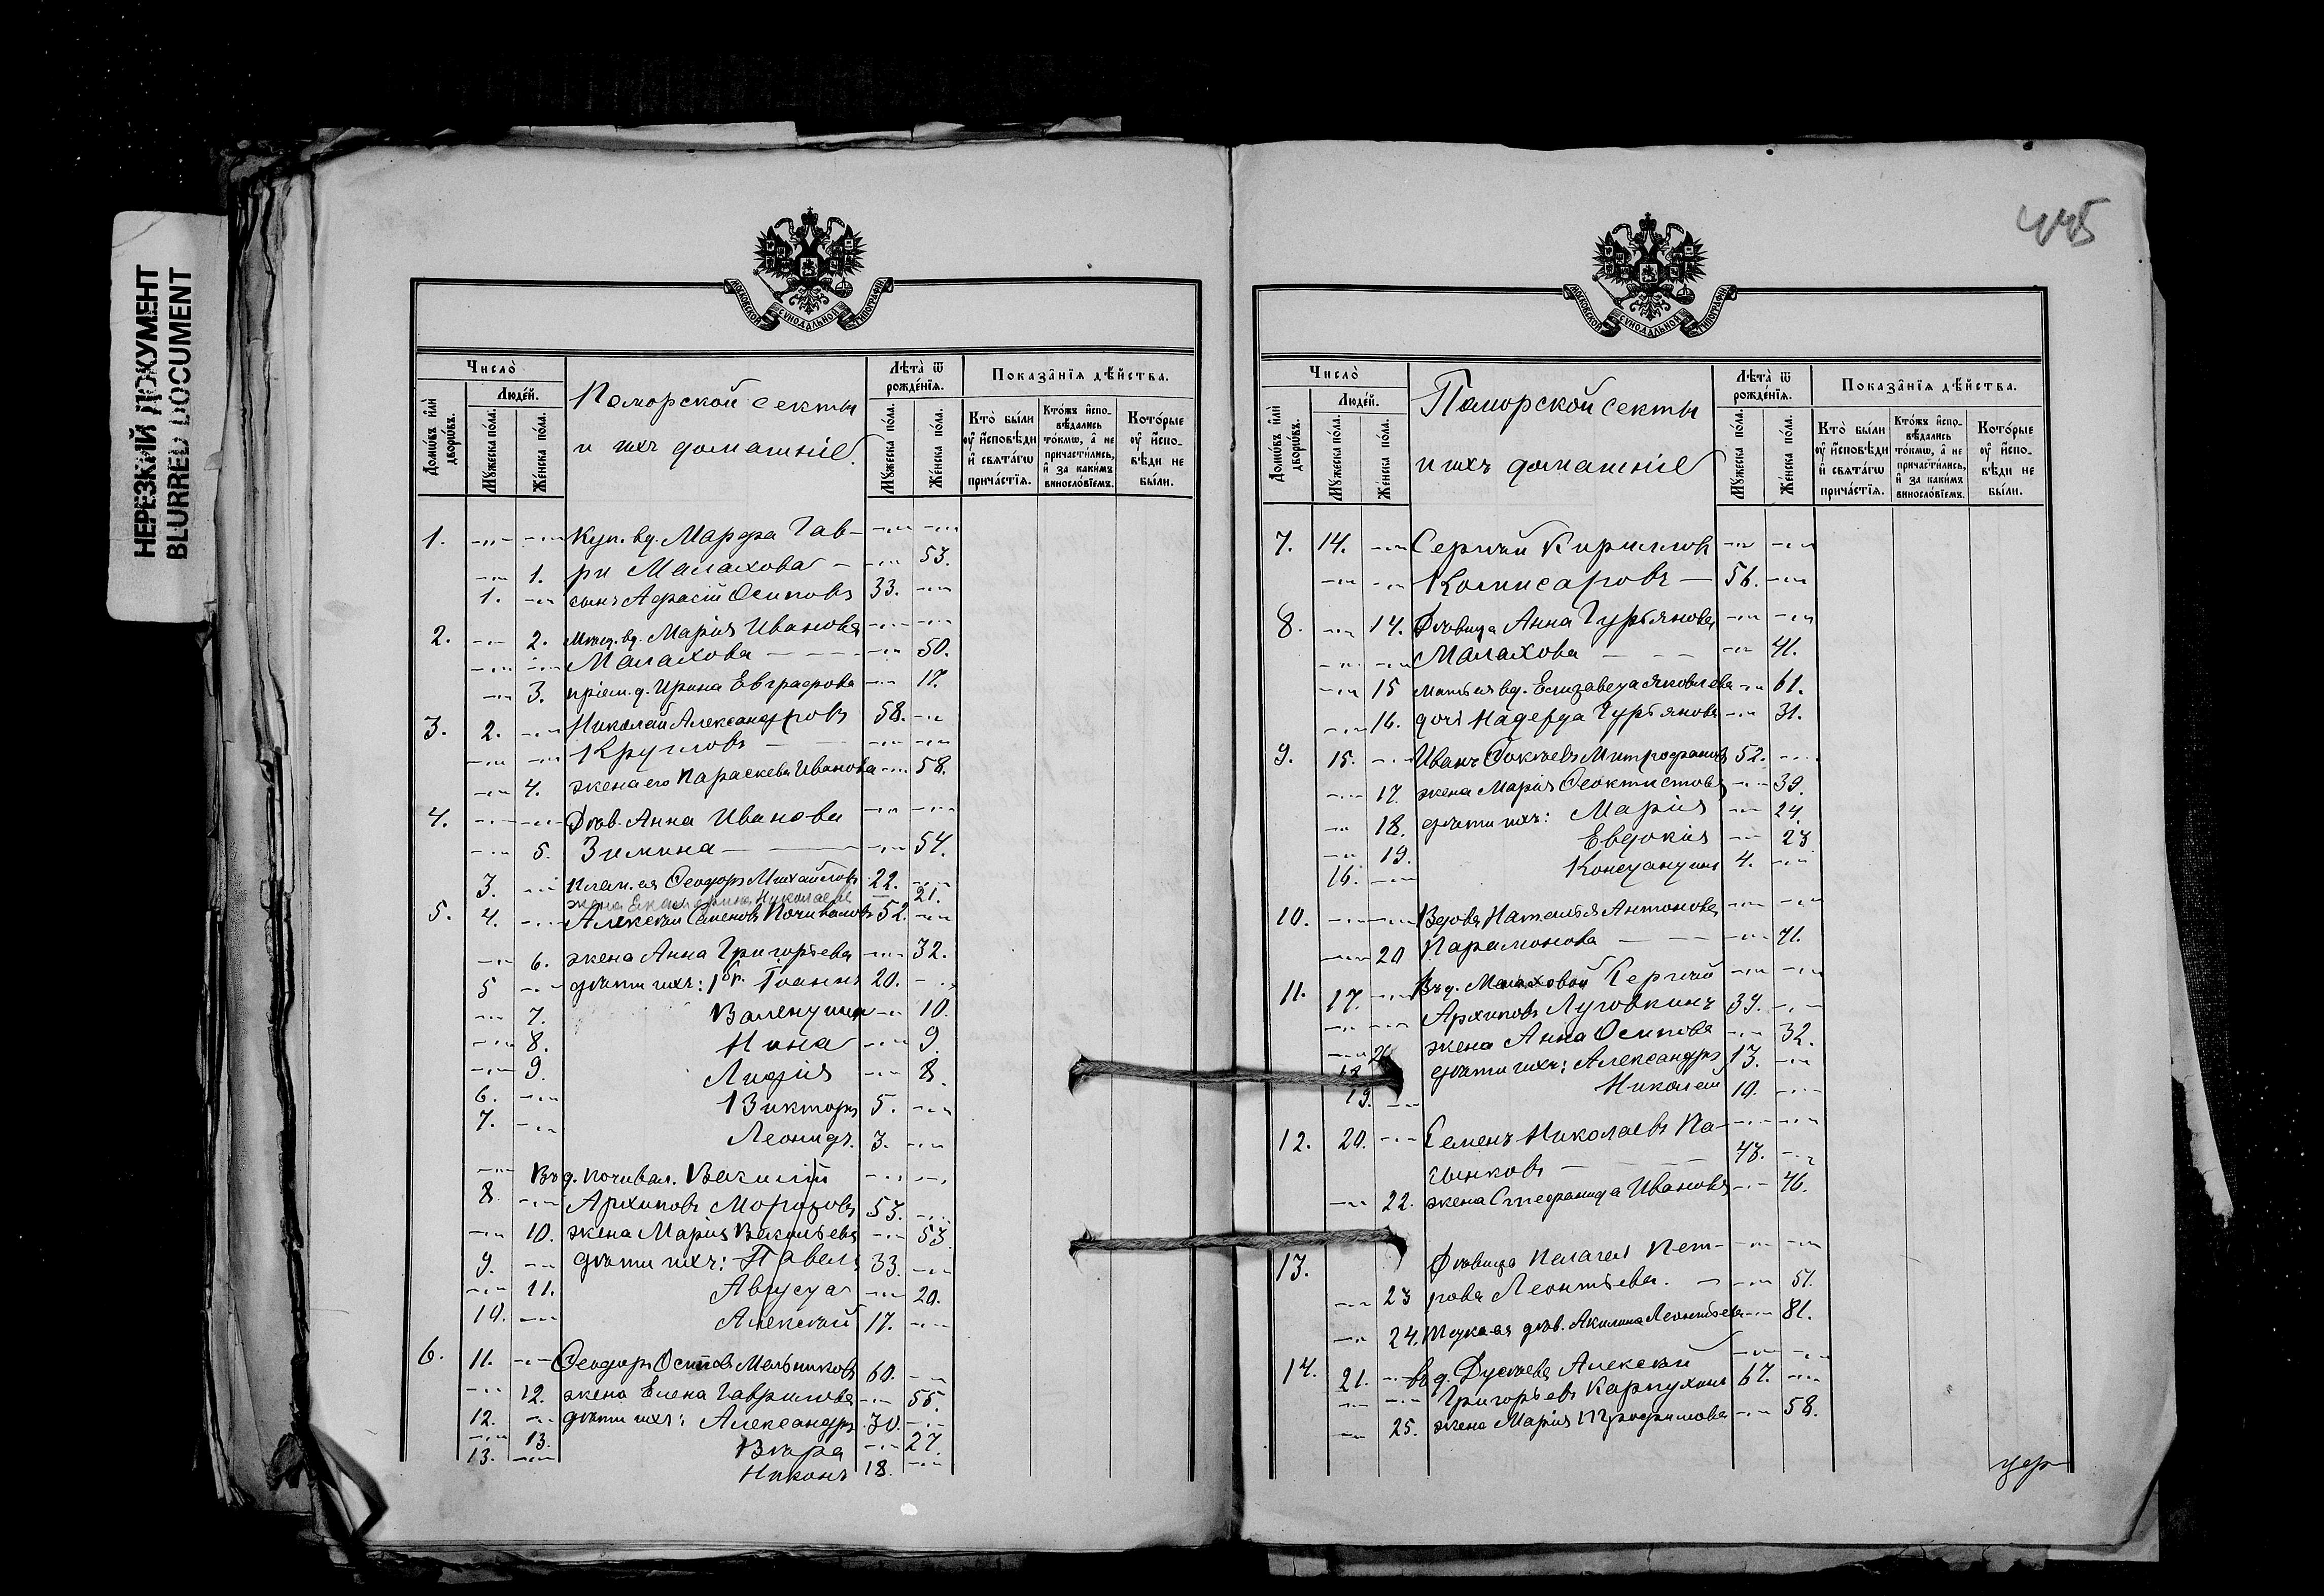 НЕРЕЗКИЙ ДОКУМЕНТ
BLURRED DOCUMENT
МОСКОВСКОЙ СѴНОДАЛЬНОЙ ТИПОГРАФІИ
Число̀
Домѡ́въ и҆лѝ дворѡ́въ.
Люде́й.
Мꙋ́жеска по́ла.
Же́нска по́ла.
Поморской секты
и ихъ домашніе.
Лѣта̀ ѿ рожде́нїѧ.
Мꙋ́жеска по́ла.
Же́нска по́ла.
Показа̑нїѧ дѣ́йства.
Кто̀ бы́ли ᲂу҆ и҆сповѣ́ди и҆ свята́гѡ прича́стїѧ.
Кто́жъ и҆спо-вѣ́дались то́кмѡ, а҆ не причасти́лись, и҆ за каки́мъ виносло́вїемъ.
Кото́рые ᲂу҆ и҆спо-вѣ́ди не бы́ли.
1. Куп. вд. Марфа Гав-
1. ри Малахова 53.
1. сынъ Афасій Осиповъ 33.
2. 2. Мѣщ. вд. Марія Иванова
Малахова 50.
3. пріем. д. Ирина Евграфова 17.
3. 2. Николай Александровъ 58.
Кругловъ
4. жена его Параскева Иванова 58.
4. Дѣв. Анна Иванова
5. Зимина 54.
3. Плем. ея Ѳеодоръ Михайловъ 22.
жена Екатерина Николаева 21.
5. 4. Алексѣй Семеновъ Почиваловъ 52.
6. жена Анна Григорьева 32.
5 дѣти ихъ: 1 бр. Іоаннъ 20.
7. Валентина 10.
8. Нина 9.
9. Лидія 8.
6. Викторъ 5.
7. Леонидъ. 3.
Въ д. Почивал. Василій
8. Архиповъ Морозовъ 53.
10. жена Марія Васильева 53.
9. дѣти ихъ: Павелъ 33.
11. Августа 20.
10. Алексѣй 17.
6. 11. Ѳеодоръ Осиповъ Мельниковъ 60.
12. жена Елена Гаврилова 55.
12. дѣти ихъ: Александръ 30.
13. Вѣра 27.
13. Никонъ 18.
445
МОСКОВСКОЙ СѴНОДАЛЬНОЙ ТИПОГРАФІИ
Число̀
Домѡ́въ и҆лѝ дворѡ́въ.
Люде́й.
Мꙋ́жеска по́ла.
Же́нска по́ла.
Поморской секты
и ихъ домашніе
Лѣта̀ ѿ рожде́нїѧ.
Мꙋ́жеска по́ла.
Же́нска по́ла.
Показа̑нїѧ дѣ́йства.
Кто̀ бы́ли ᲂу҆ и҆сповѣ́ди и҆ свята́гѡ прича́стїѧ.
Кто́жъ и҆спо-вѣ́дались то́кмѡ, а҆ не причасти́лись, и҆ за каки́мъ виносло́вїемъ.
Кото́рые ᲂу҆ и҆спо-вѣ́ди не бы́ли.
7. 14. Сергѣй Кирилловъ
Комисаровъ 56.
8. 14. Дѣвица Анна Гурьянова
Малахова 41.
15 мать ея вд. Елизавета Яковлева 61.
16. дочь Надежда Гурьянова 31.
9. 15. Иванъ Ѳокѣевъ Митрофановъ 52.
17. жена Марія Ѳеоктистова 39.
18. дѣти ихъ: Марія 24.
19. Евдокія 23
16. Константинъ 4.
10. Вдова Наталья Антонова
20 Парамонова 71.
11. 17. Въ д. Малаховой Сергѣй
Архиповъ Луговкинъ 39.
21 жена Анна Осипова 32.
18 дѣти ихъ: Александръ 13.
19. Николай 10.
12. 20. Семенъ Николаевъ Па-
43.
22. жена Стефанида Иванова 46.
13. Дѣвица Пелагея Пет-
23 рова Леонтьева. 51.
24. Тетка ея дѣв. Акилина Леонтьева 81.
14. 21. въ д. Алексѣй
Григорьевъ Карпухинъ 67.
25. жена Марія Трофимова 58.